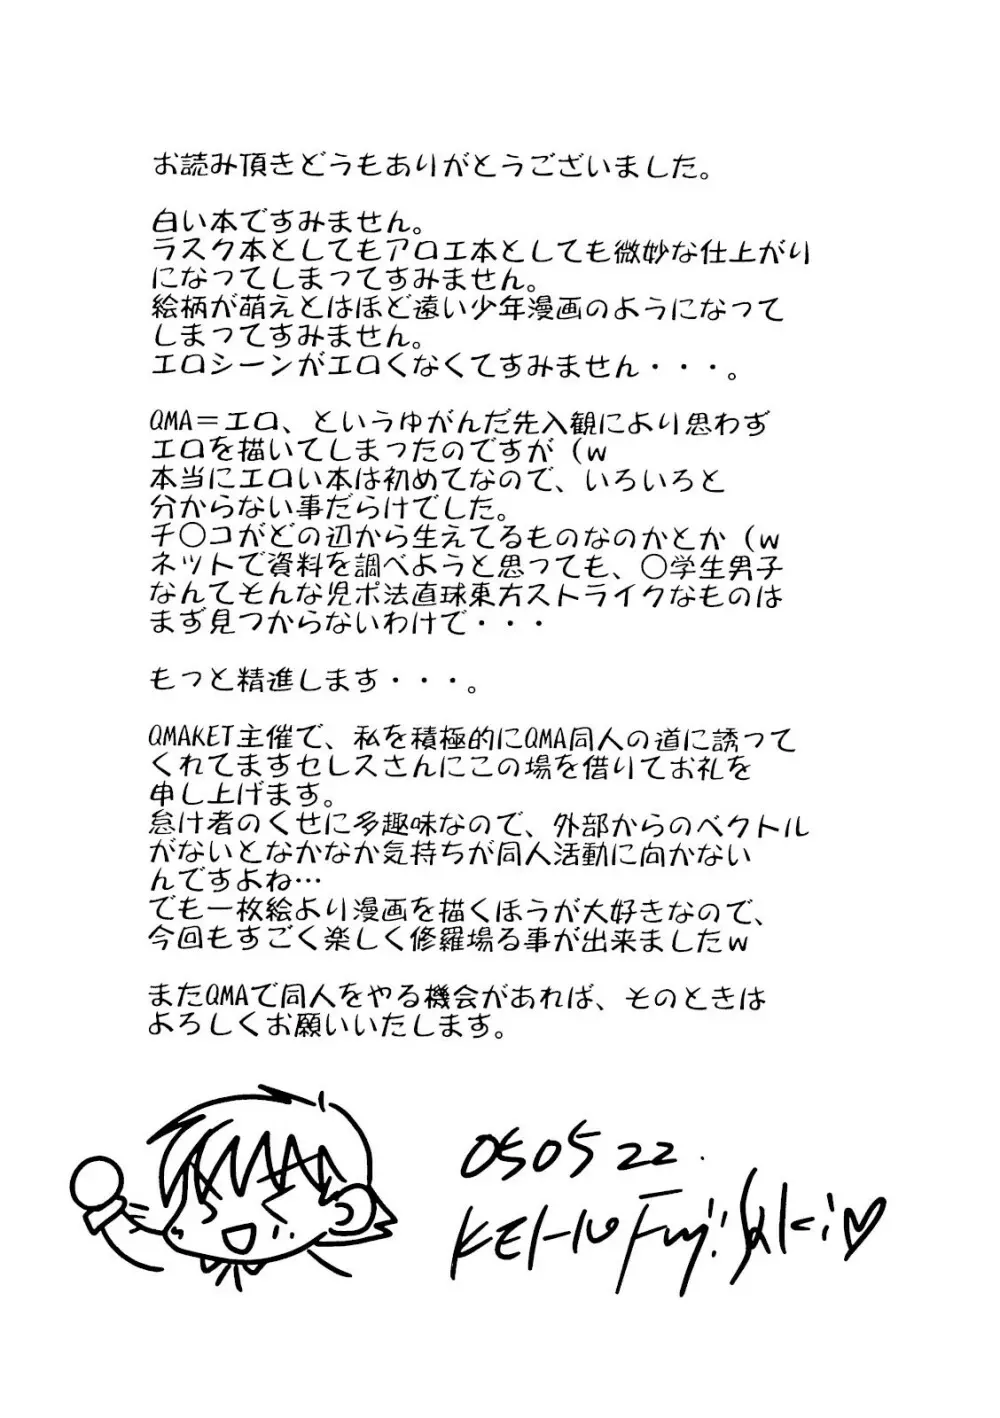 お読み頂きどうもありがとうございました。
白い本ですみません。
ラスク本としてもアロエ本としても微妙な仕上がり
になってしまってすみません。
絵柄が萌えとはほど遠い少年漫画のようになって
しまってすみません。
エロシーンがエロくなくてすみません・・・。
QMA＝エロ、というゆがんだ先入観により思わず
エロを描いてしまったのですが（w
本当にエロい本は初めてなので、いろいろと
分からない事だらけでした。
チ〇コがどの辺から生えてるものなのかとか（w
ネットで資料を調べようと思っても、〇学生男子
なんてそんな児ポ法直球東方ストライクなものは
まず見つからないわけで・・・
もっと精進します・・・。
QMAKET主催で、私を積極的にQMA同人の道に誘って
くれてますセレスさんにこの場を借りてお礼を
申し上げます。
怠け者のくせに多趣味なので、外部からのベクトル
がないとなかなか気持ちが同人活動に向かない
んですよね…
でも一枚絵より漫画を描くほうが大好きなので、
今回もすごく楽しく修羅場る事が出来ましたw
またQMAで同人をやる機会があれば、そのときは
よろしくお願いいたします。
050522.
Fujisaki♡